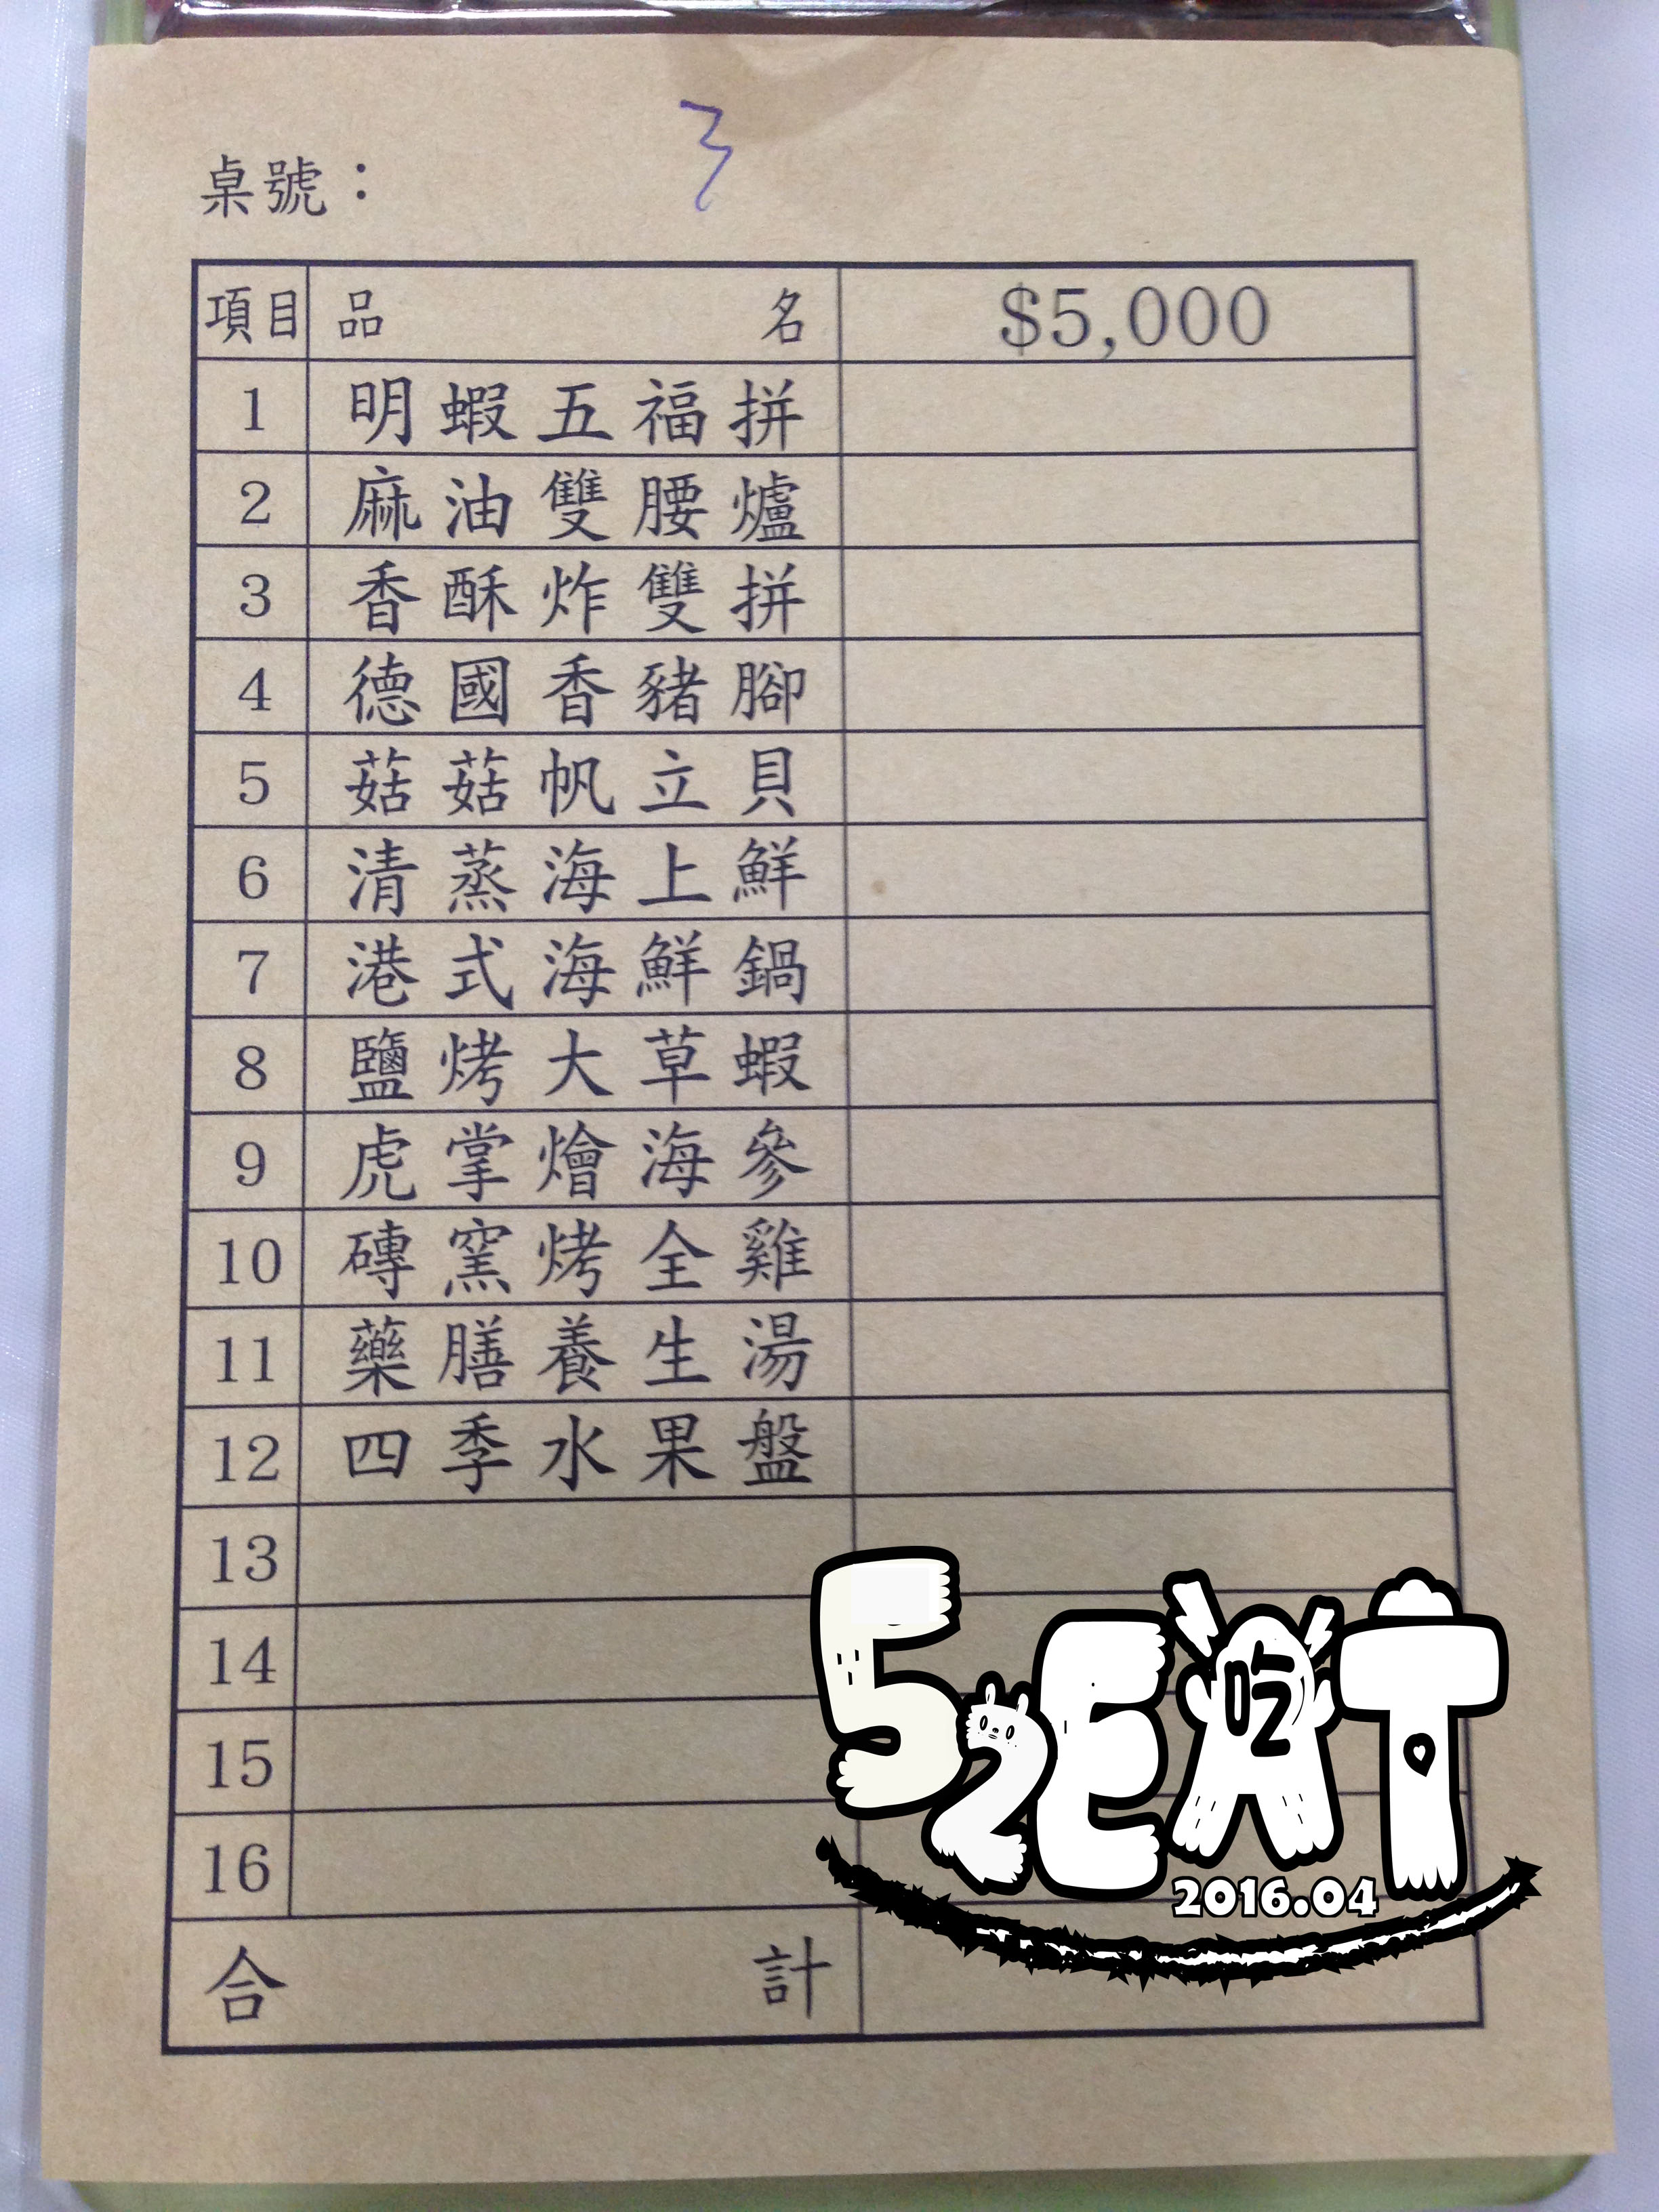 桌號： 3
項目 品名 $5,000
1 明蝦五福拼
2 麻油雙腰爐
3 香酥炸雙拼
4 德國香豬腳
5 菇菇帆立貝
6 清蒸海上鮮
7 港式海鮮鍋
8 鹽烤大草蝦
9 虎掌燴海參
10 磚窯烤全雞
11 藥膳養生湯
12 四季水果盤
13
14
15
16
合計
52EAT
吃
2016.04